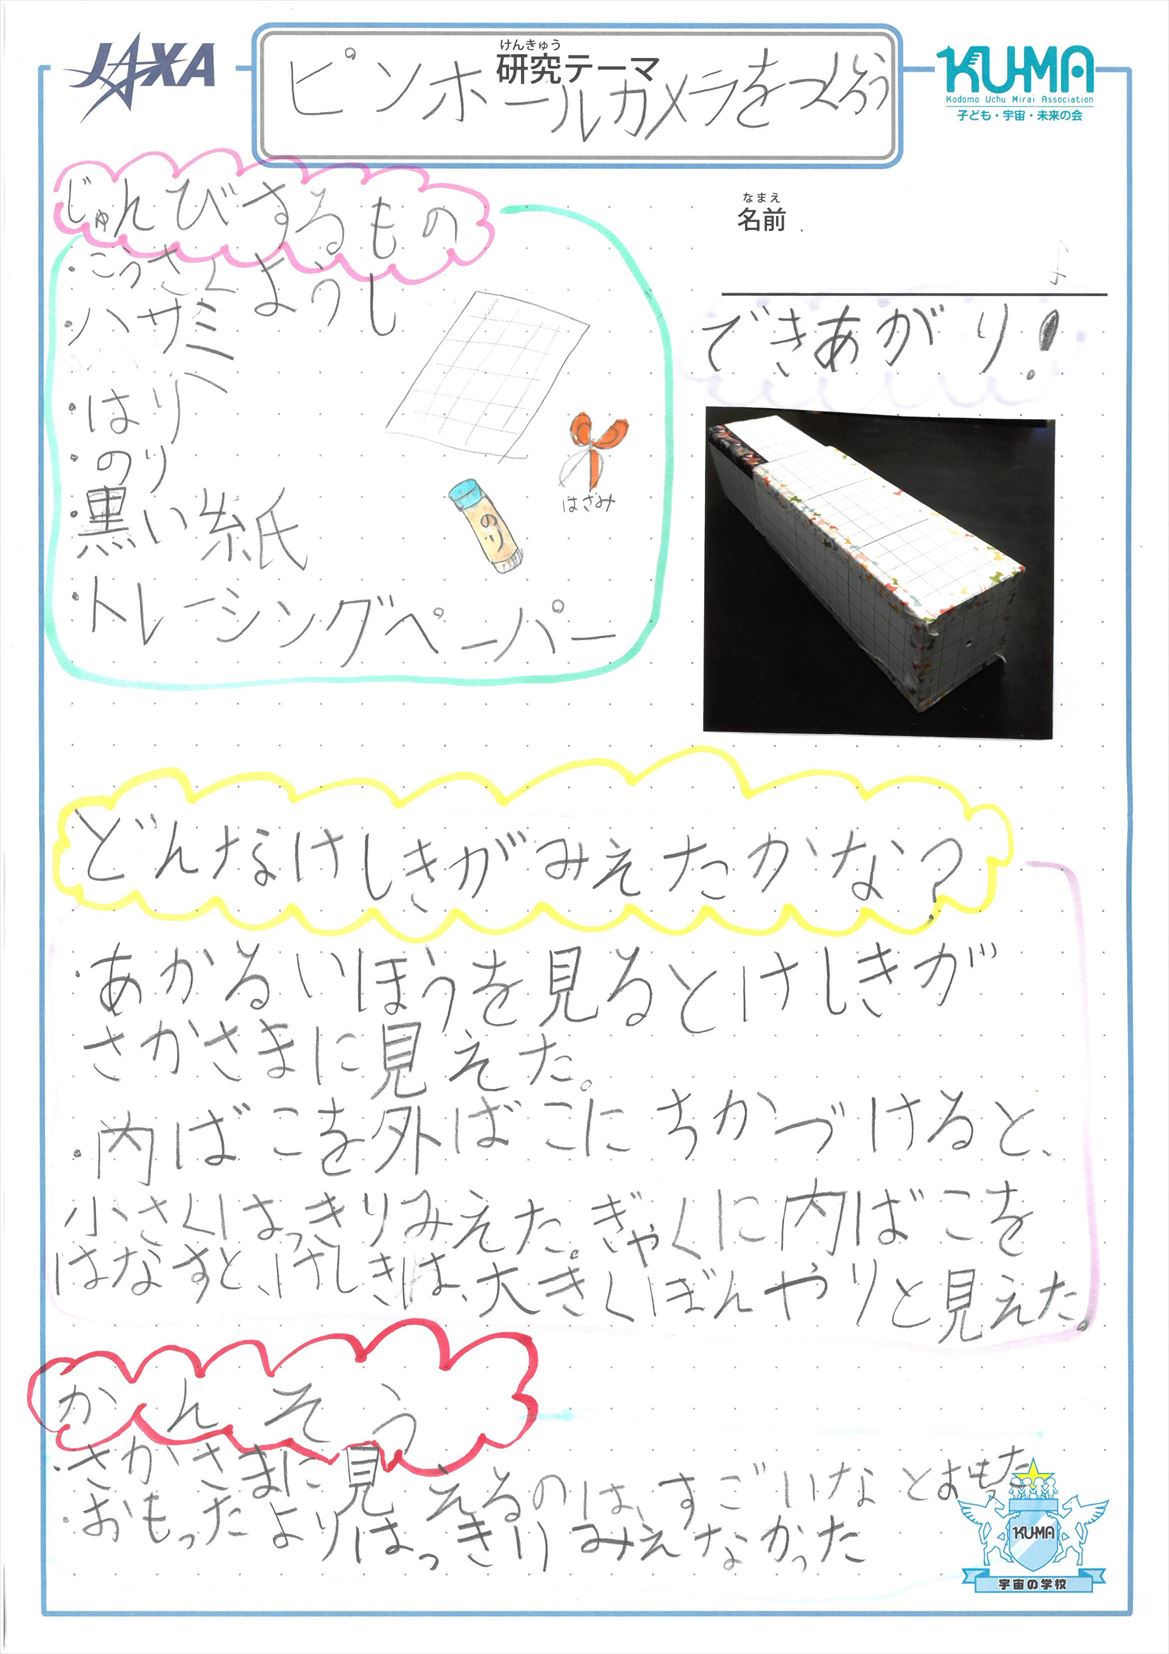 JAXA
けんきゅう
研究テーマ
ピンホールカメラをつくろう
KU-MA
Kodomo Uchu Mirai Association
子ども・宇宙・未来の会
じゅんびするもの
なまえ
名前
・こうさくようし
・ハサミ
・はり
・のり
・黒い紙
・トレーシングペーパー
のり
はさみ
できあがり!
どんなけしきがみえたかな?
・あかるいほうを見るとけしきが
さかさまに見えた。
・内ばこを外ばこにちかづけると、
小さくはっきりみえた。ぎゃくに内ばこを
はなすと、けしきは、大きくぼんやりと見えた。
かんそう
・さかさまに見えるのは、すごいなとおもった
・おもったよりはっきりみえなかった
KU-MA
宇宙の学校